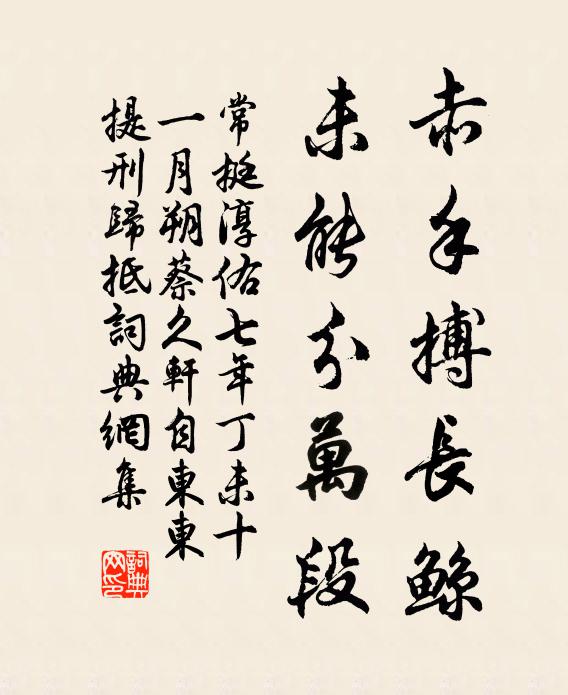 赤手搏長鯨
未能分萬段
常挺淳佑七年丁未十
一月朔蔡久軒自東東
提刑歸抵詞典網集
詞典網印